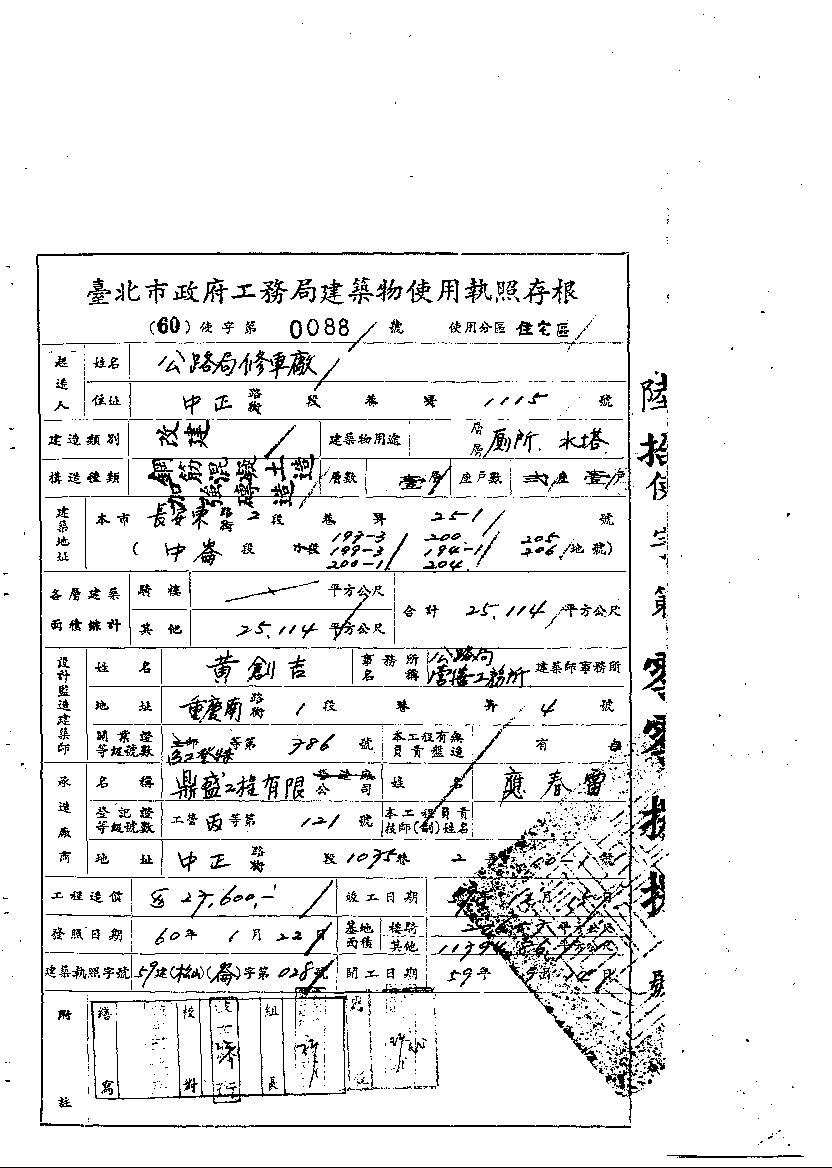 臺北市政府工務局建築物使用執照存根
(60)使字第 0088 號 使用分區 住宅區
起造人 姓名 公路局修車廠
住址 中正 路街 段 巷 弄 1115 號
建造類別 改建 建築物用途 店房 廁所 水塔
構造種類 鋼筋混凝土造 加強磚造 層數 壹層 座戶數 座 壹戶
建築地址 本市 長安東 路街 2段 巷 弄 251 號
(中崙 段 小段 199-3 200 205
199-3 194-1 206 地號)
200-1 204
各層建築面積總計 騎樓 平方公尺 合計 25.114 平方公尺
其他 25.114 平方公尺
設計監造建築師 姓名 黃創吉 事務所名稱 公路局 工務所 建築師事務所
地址 重慶南 路街 1段 巷 弄 4 號
開業證等級號數 等第 786 號 本工程有無負責監造 有
承造廠商 名稱 鼎盛工程有限公司 姓名 應春雷
登記證等級號數 工營 丙 等第 121 號 本工程負責技師(副)姓名
地址 中正 路街 段 1035巷 2 弄 10-1 號
工程造價 27,600.- 竣工日期 年 月 15 日
發照日期 60年 1月 22日 基地面積 騎樓 平方公尺
其他 平方公尺
建築執照字號 59建(松山)(崙)字第028號 開工日期 59年 9月 14日
附註 繕寫 校對 組長
陸拾使字第零零捌捌號